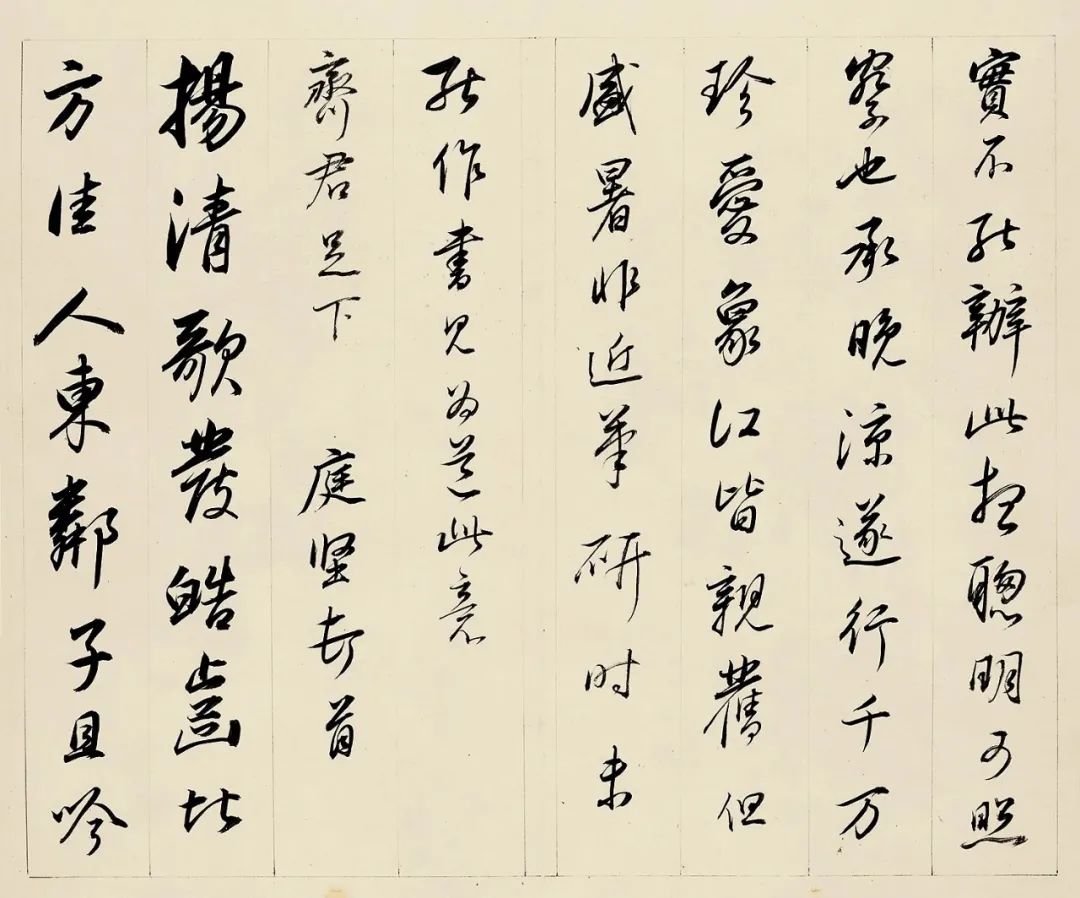 實不能辦此想聰明可照
察也承晚涼遂行千万
珍愛象江皆親舊但
盛暑非近筆研时未
能作書見为道此意
齋君足下 庭堅頓首
揚清歌發皓齒北
方佳人東鄰子且吟